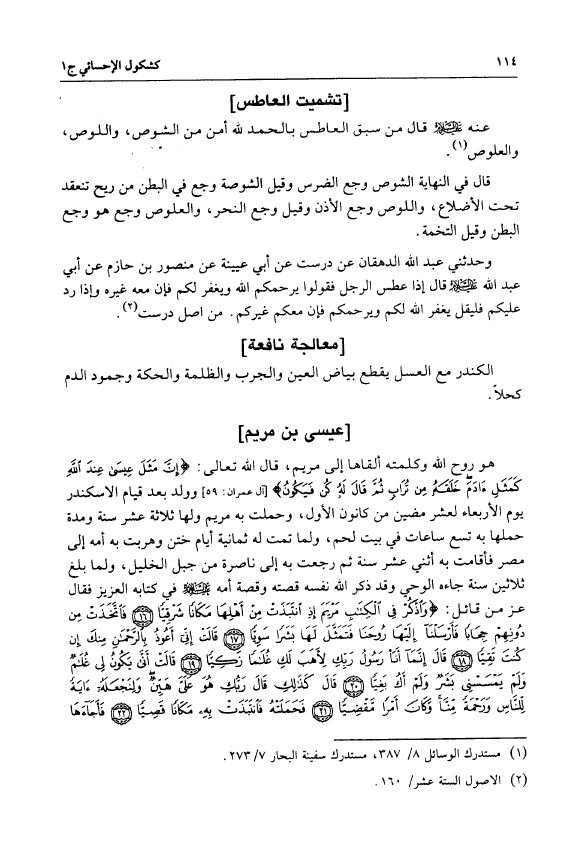 ١١٤ كشكول الإحسائي ج١
[تشميت العاطس]
عنه عليه السلام قال من سبق العاطس بالحمد لله أمن من الشوص، واللوص،
والعلوص(١).
قال في النهاية الشوص وجع الضرس وقيل الشوصة وجع في البطن من ريح تنعقد
تحت الأضلاع، واللوص وجع الأذن وقيل وجع النحر، والعلوص وجع هو وجع
البطن وقيل التخمة.
وحدثني عبد الله الدهقان عن درست عن أبي عيينة عن منصور بن حازم عن أبي
عبد الله عليه السلام قال إذا عطس الرجل فقولوا يرحمكم الله ويغفر لكم فإن معه غيره وإذا رد
عليكم فليقل يغفر الله لكم ويرحمكم فإن معكم غيركم. من اصل درست(٢).
[معالجة نافعة]
الكندر مع العسل يقطع بياض العين والجرب والظلمة والحكة وجمود الدم
كحلاً.
[عيسى بن مريم]
هو روح الله وكلمته ألقاها إلى مريم، قال الله تعالى: ﴿إِنَّ مَثَلَ عِيسَىٰ عِندَ ٱللَّهِ
كَمَثَلِ ءَادَمَ خَلَقَهُۥ مِن تُرَابٍ ثُمَّ قَالَ لَهُۥ كُن فَيَكُونُ﴾ [آل عمران: ٥٩] وولد بعد قيام الاسكندر
يوم الأربعاء لعشر مضين من كانون الأول، وحملت به مريم ولها ثلاثة عشر سنة ومدة
حملها به تسع ساعات في بيت لحم، ولما تمت له ثمانية أيام ختن وهربت به أمه إلى
مصر فأقامت به أثني عشر سنة ثم رجعت به إلى ناصرة من جبل الخليل، ولما بلغ
ثلاثين سنة جاءه الوحي وقد ذكر الله نفسه قصته وقصة أمه عليه السلام في كتابه العزيز فقال
عز من قائل: ﴿وَٱذْكُرْ فِى ٱلْكِتَٰبِ مَرْيَمَ إِذِ ٱنتَبَذَتْ مِنْ أَهْلِهَا مَكَانًا شَرْقِيًّا ﴿١٦﴾ فَٱتَّخَذَتْ مِن
دُونِهِمْ حِجَابًا فَأَرْسَلْنَآ إِلَيْهَا رُوحَنَا فَتَمَثَّلَ لَهَا بَشَرًا سَوِيًّا ﴿١٧﴾ قَالَتْ إِنِّىٓ أَعُوذُ بِٱلرَّحْمَٰنِ مِنكَ إِن
كُنتَ تَقِيًّا ﴿١٨﴾ قَالَ إِنَّمَآ أَنَا۠ رَسُولُ رَبِّكِ لِأَهَبَ لَكِ غُلَٰمًا زَكِيًّا ﴿١٩﴾ قَالَتْ أَنَّىٰ يَكُونُ لِى غُلَٰمٌ
وَلَمْ يَمْسَسْنِى بَشَرٌ وَلَمْ أَكُ بَغِيًّا ﴿٢٠﴾ قَالَ كَذَٰلِكِ قَالَ رَبُّكِ هُوَ عَلَىَّ هَيِّنٌ وَلِنَجْعَلَهُۥٓ ءَايَةً
لِّلنَّاسِ وَرَحْمَةً مِّنَّا وَكَانَ أَمْرًا مَّقْضِيًّا ﴿٢١﴾ فَحَمَلَتْهُ فَٱنتَبَذَتْ بِهِۦ مَكَانًا قَصِيًّا ﴿٢٢﴾ فَأَجَآءَهَا
(١) مستدرك الوسائل ٨/ ٣٨٧، مستدرك سفينة البحار ٧/ ٢٧٣.
(٢) الاصول الستة عشر/ ١٦٠.